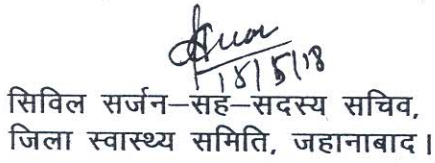 18/5/18
सिविल सर्जन–सह–सदस्य सचिव,
जिला स्वास्थ्य समिति, जहानाबाद।